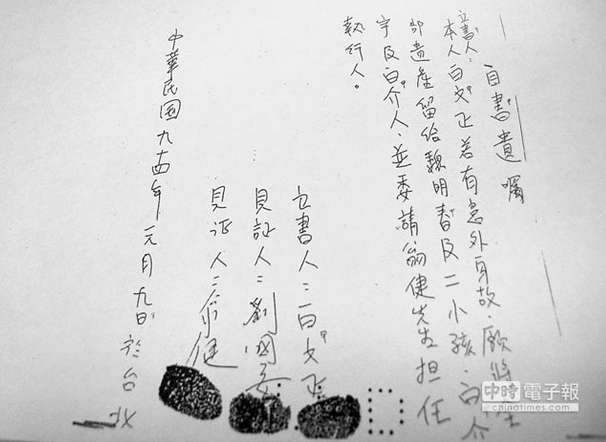 自書遺囑
立書人:
本人白文正若有意外身故,願將全
部遺產留給魏明春及二小孩,白介
宇及白介人,並委請翁健先生擔任
執行人。
立書人:白文正
見証人:劉國安
見证人:翁健
中華民国九十四年元月九日於台北
中時電子報
chinatimes.com